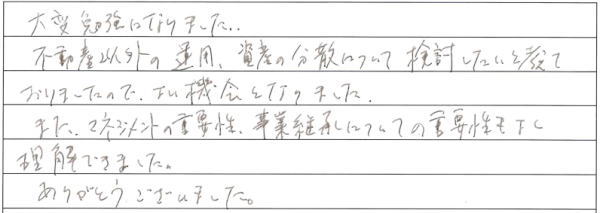 大変勉強になりました..
不動産以外の運用、資産の分散について検討したいと考えて
おりましたので、よい機会となりました.
また、マネジメントの重要性、事業継承についての重要性も
理解できました。
ありがとうございました。